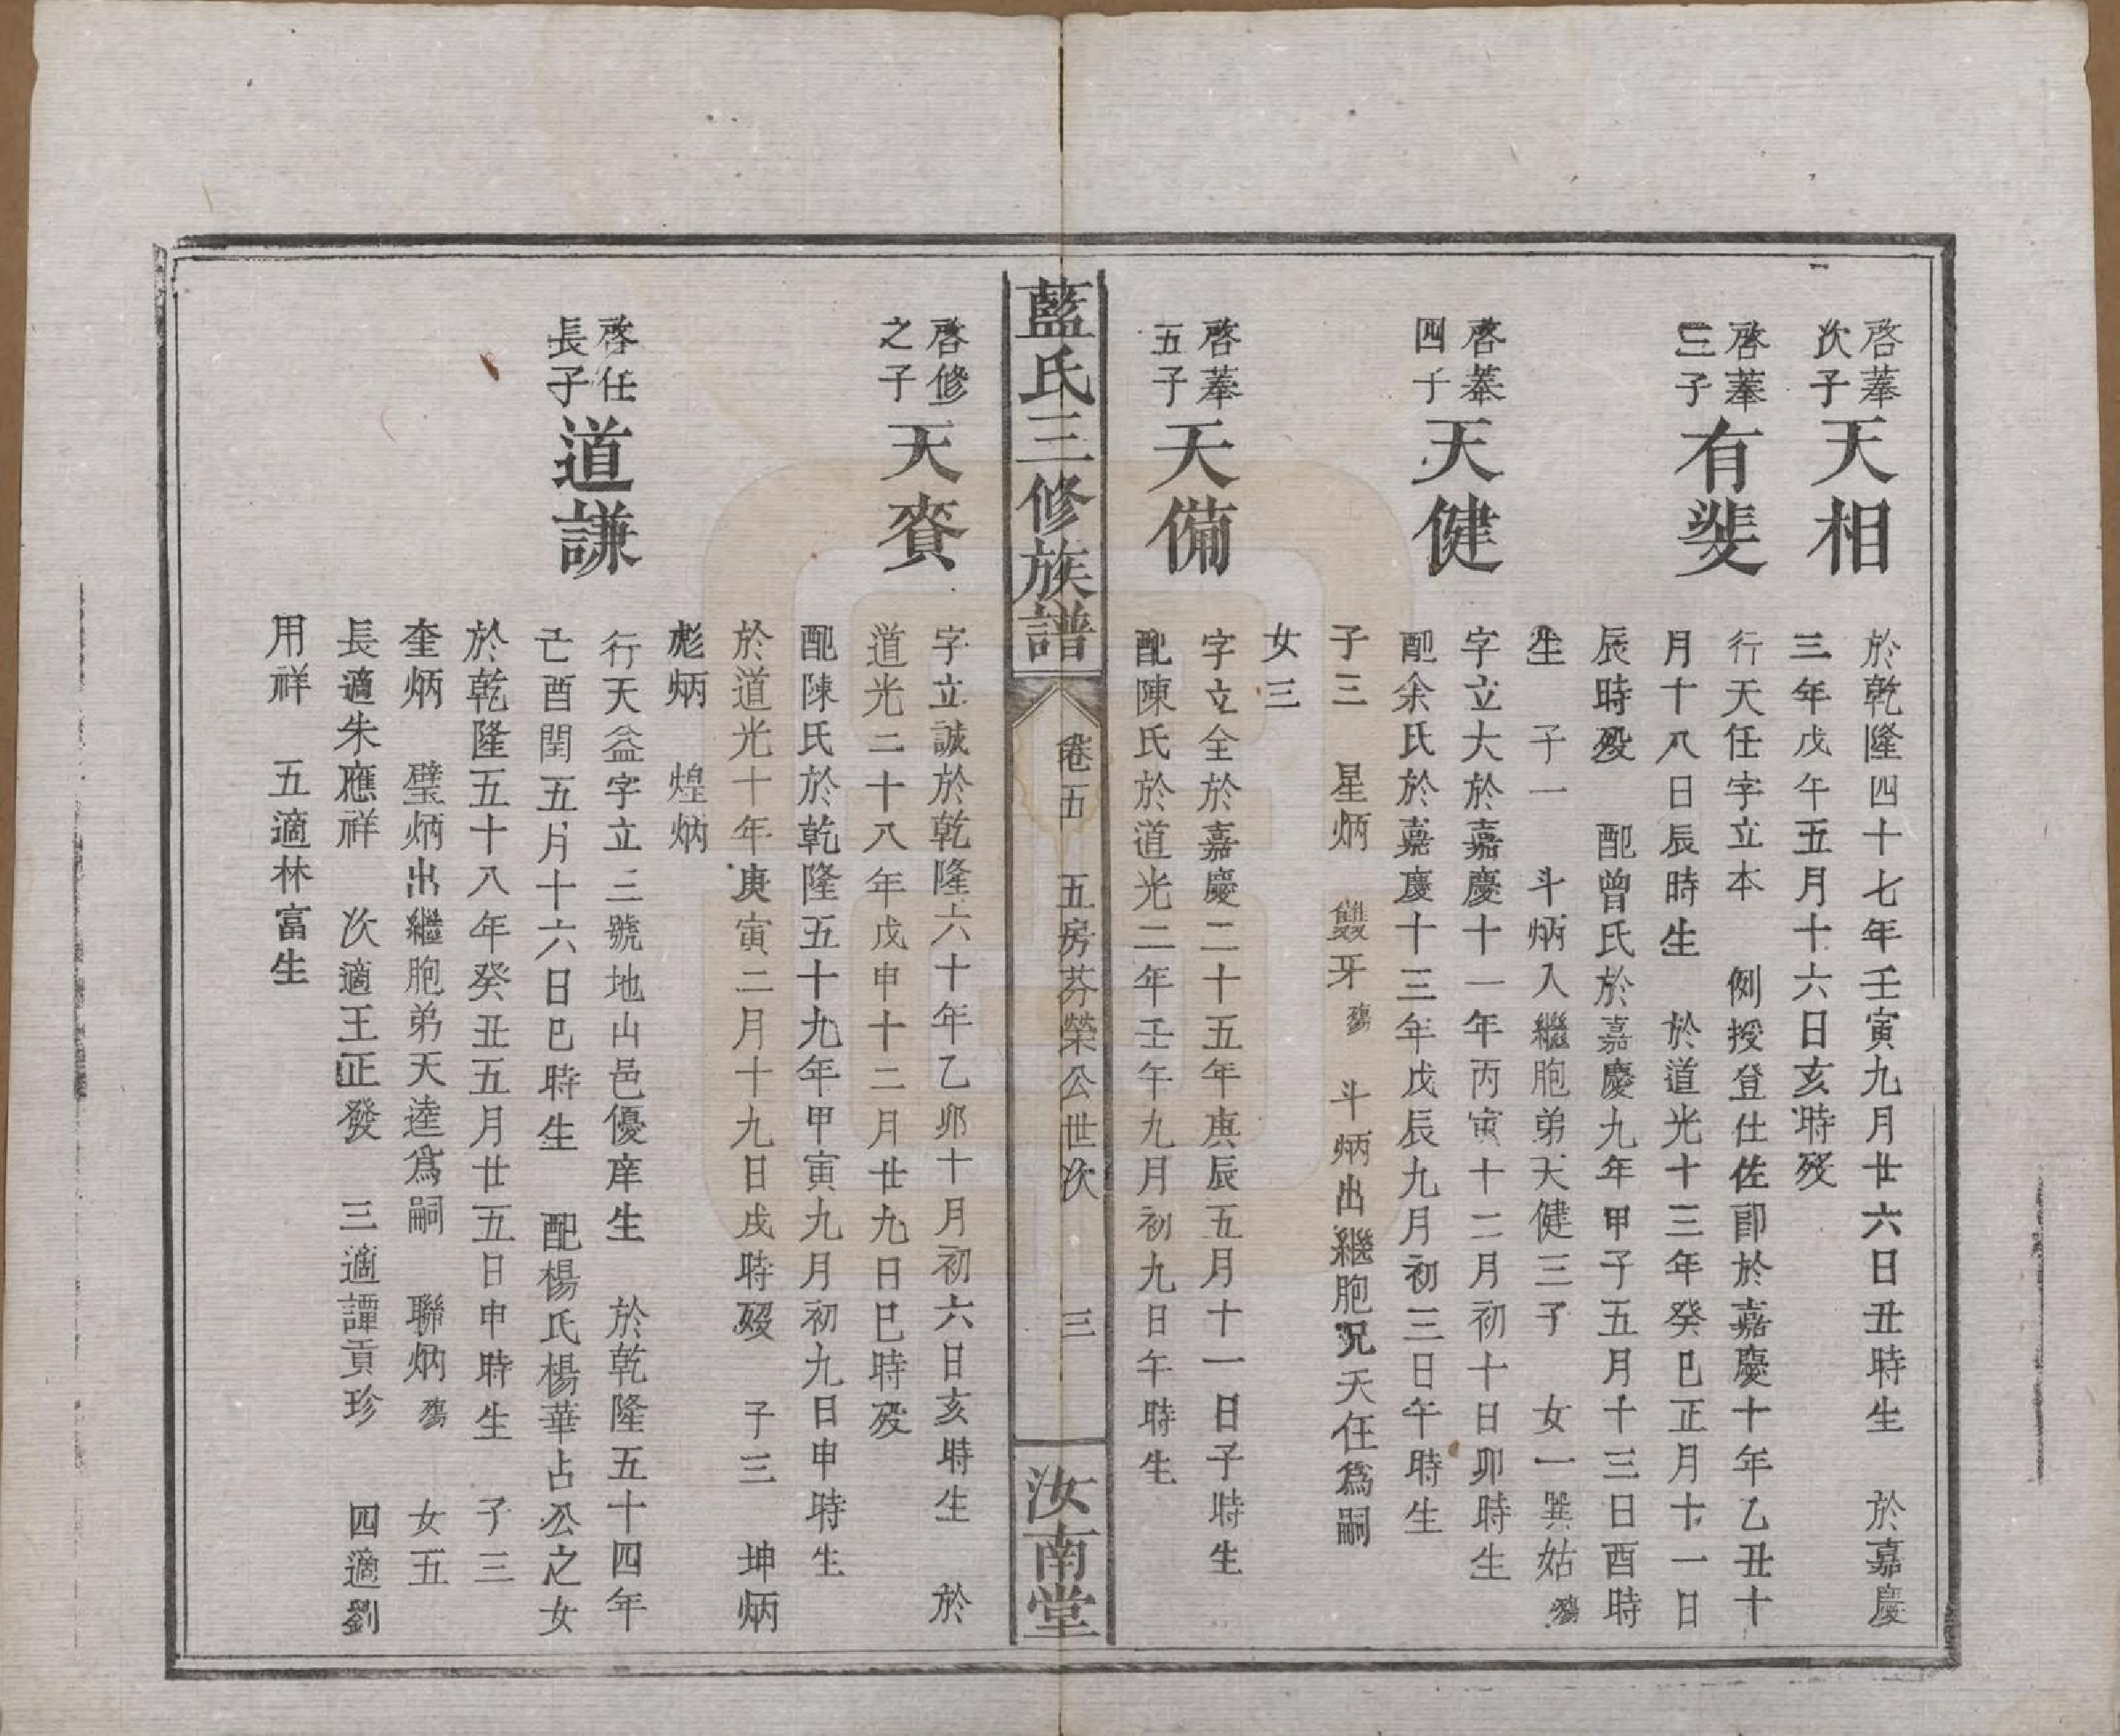 啓菶次子
天相
於乾隆四十七年壬寅九月廿六日丑時生 於嘉慶
三年戊午五月十六日亥時歿
啓菶三子
有斐
行天任字立本 例授登仕佐郎於嘉慶十年乙丑十
月十八日辰時生 於道光十三年癸巳正月十一日
辰時歿 配曾氏於嘉慶九年甲子五月十三日酉時
生 子一 斗炳入繼胞弟天健三子 女一巽姑殤
啓菶四子
天健
字立大於嘉慶十一年丙寅十二月初十日卯時生
配余氏於嘉慶十三年戊辰九月初三日午時生
子三 星炳 雙牙殤 斗炳出繼胞兄天任爲嗣
女三
啓菶五子
天備
字立全於嘉慶二十五年庚辰五月十一日子時生
配陳氏於道光二年壬午九月初九日午時生
藍氏三修族譜
卷五 五房芬榮公世次 三
汝南堂
啓修之子
天賚
字立誠於乾隆六十年乙卯十月初六日亥時生 於
道光二十八年戊申十二月廿九日巳時歿
配陳氏於乾隆五十九年甲寅九月初九日申時生
於道光十年庚寅二月十九日戌時歿 子三 坤炳
彪炳 煌炳
啓任長子
道謙
行天益字立三號地山邑優庠生 於乾隆五十四年
己酉閏五月十六日巳時生 配楊氏楊華占公之女
於乾隆五十八年癸丑五月廿五日申時生 子三
奎炳 璧炳出繼胞弟天逵爲嗣 聯炳殤 女五
長適朱應祥 次適王正發 三適譚貢珍 四適劉
用祥 五適林富生